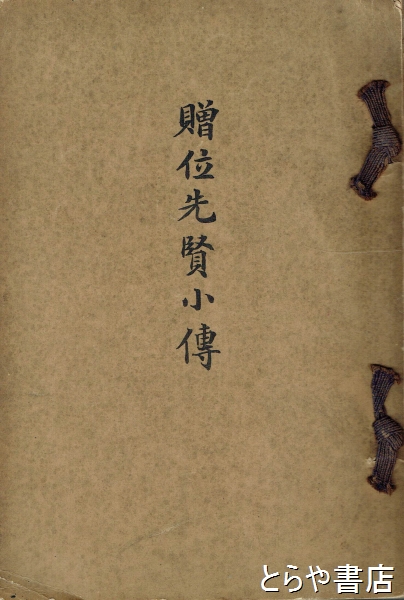 贈位先賢小傳
とらや書店